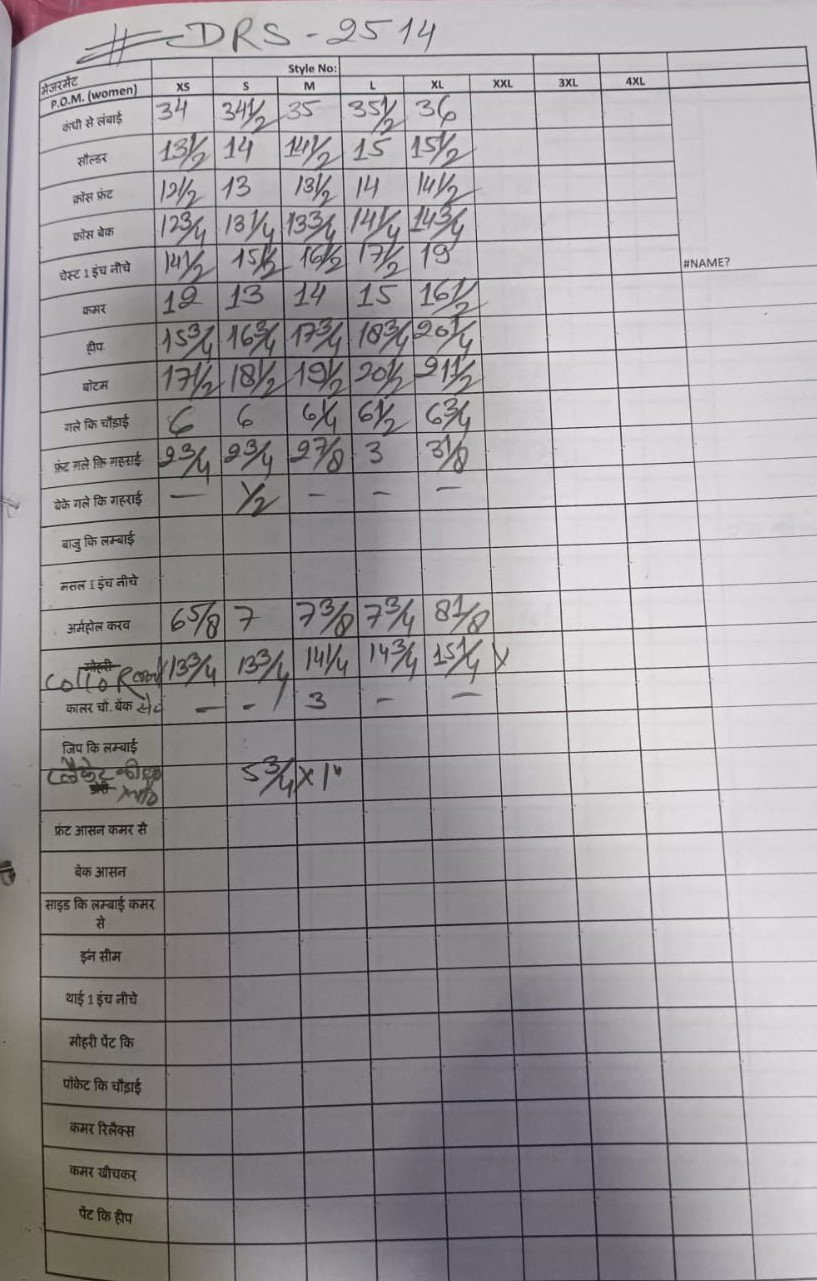 # DRS - 2514
मेजरमेंट Style No:
P.O.M. (women) XS S M L XL XXL 3XL 4XL
कंधी से लंबाई 34 34 1/2 35 35 1/2 36
सौल्डर 13 1/2 14 14 1/2 15 15 1/2
क्रोस फ्रंट 12 1/2 13 13 1/2 14 14 1/2
क्रोस बेक 12 3/4 13 1/4 13 3/4 14 1/4 14 3/4
चेस्ट 1 इंच नीचे 14 1/2 15 1/2 16 1/2 17 1/2 19 #NAME?
कमर 12 13 14 15 16 1/2
हीप 15 3/4 16 3/4 17 3/4 18 3/4 20 1/4
बोटम 17 1/2 18 1/2 19 1/2 20 1/2 21 1/2
गले कि चौडाई 6 6 6 1/4 6 1/2 6 3/4
फ्रंट गले कि गहराई 2 3/4 2 3/4 2 7/8 3 3 1/8
बेके गले कि गहराई — 1/2 - - -
बाजु कि लम्बाई
मसल 1 इंच नीचे
अर्महोल करव 6 5/8 7 7 3/8 7 3/4 8 1/8
मोहरी 13 3/4 13 3/4 14 1/4 14 3/4 15 1/4
कालर चौ. बेक से — - 3 - —
जिप कि लम्बाई
5 3/4 x 1"
फ्रंट आसन कमर से
बेक आसन
साइड कि लम्बाई कमर
से
इन सीम
थाई 1 इंच नीचे
मोहरी पेंट कि
पॉकेट कि चौड़ाई
कमर रिलैक्स
कमर खीचकर
पेंट कि हीप